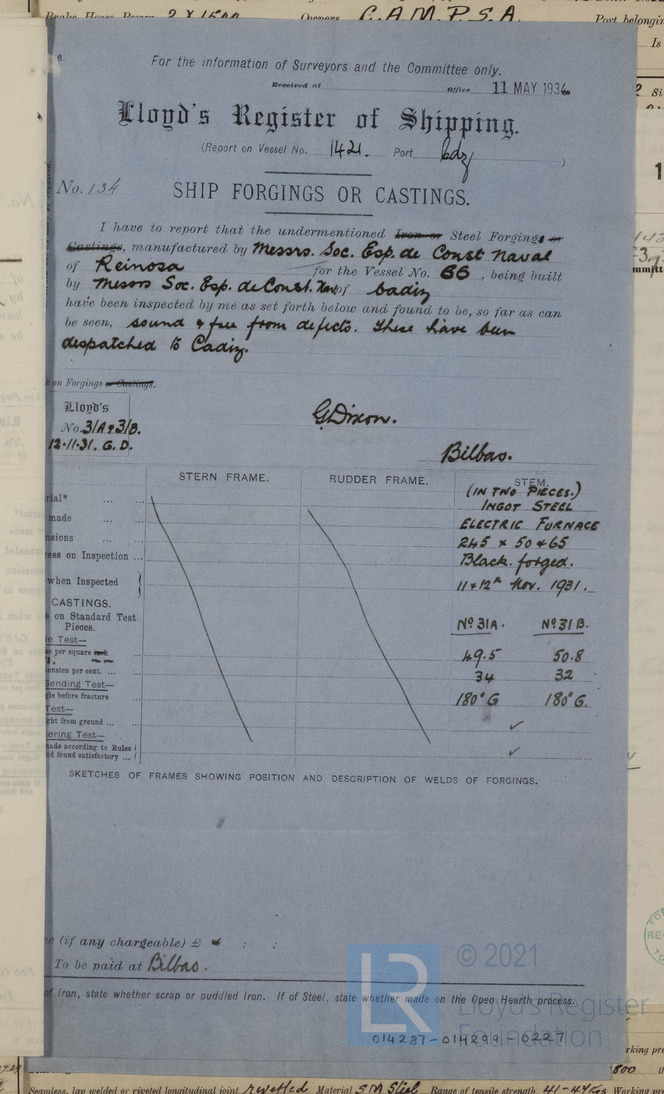 Brake Horse Power 2 X 1500 Owners C.A.M.P.S.A. Port belonging
6.
For the information of Surveyors and the Committee only.
Received at Office 11 MAY 1934
Lloyd's Register of Shipping.
(Report on Vessel No. 1421. Port Cdz )
No. 134
SHIP FORGINGS OR CASTINGS.
I have to report that the undermentioned Iron or Steel Forgings or
Castings, manufactured by Messrs. Soc. Esp. de Const Naval
of Reinosa for the Vessel No. 66 , being built
by Messrs Soc. Esp. de Const. Nav of Cadiz
have been inspected by me as set forth below and found to be, so far as can
be seen, sound & free from defects. These have been
despatched to Cadiz.
on Forgings or Castings.
Lloyd's
No. 31A & 31B.
12.11.31. G.D.
G Dixon.
Bilbao.
STERN FRAME. RUDDER FRAME. STEM.
(IN TWO PIECES.)
rial* ... ... INGOT STEEL
made ... ... ELECTRIC FURNACE
nsions ... ... 245 x 50 & 65
ess on Inspection ... Black forged.
when Inspected 11 & 12th Nov. 1931.
CASTINGS.
s on Standard Test
Pieces. No 31A. No 31B.
e Test—
s per square inch 49.5 50.8
ension per cent. ... 34 32
Bending Test—
gle before fracture 180° G 180° G.
Test—
ght from ground ... ... ✓
ering Test—
ade according to Rules
d found satisfactory ... ✓
SKETCHES OF FRAMES SHOWING POSITION AND DESCRIPTION OF WELDS OF FORGINGS.
e (if any chargeable) £ : :
To be paid at Bilbao.
of Iron, state whether scrap or puddled Iron. If of Steel, state whether made on the Open Hearth process.
LR © 2021
Lloyd's Register
Foundation
014287-014299-0227
Seamless, lap welded or riveted longitudinal joint rivetted Material S M Steel Range of tensile strength 41-47 Kos Working pre